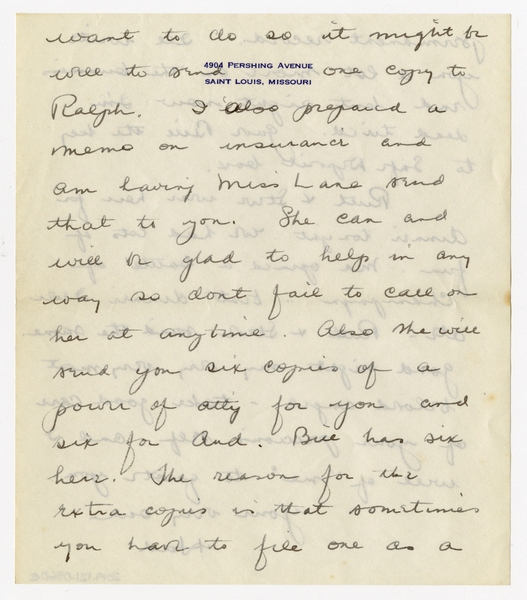 want to do so it might be
4904 PERSHING AVENUE
well to send one copy to
SAINT LOUIS, MISSOURI
Ralph. I also prepared a
memo on insurance and
am having Miss Lane send
that to you. She can and
will be glad to help in any
way so dont fail to call on
her at anytime. Also she will
send you six copies of a
power of atty for you and
six for Aud. Bill has six
here. The reason for the
extra copies is that sometimes
you have to file one as a